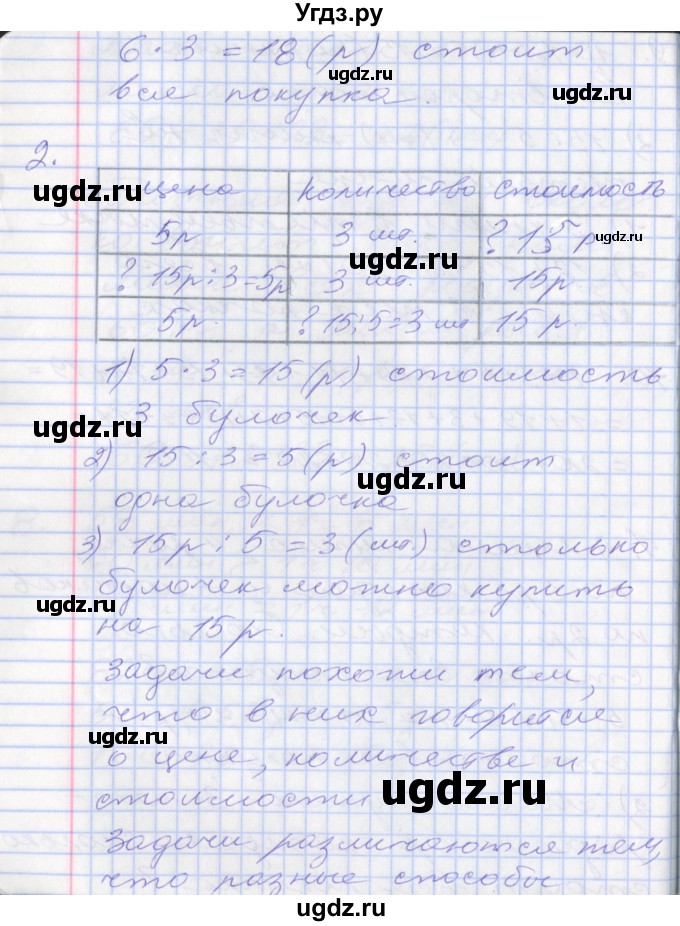 Угдз.ру
6·3=18(р) стоит
вся покупка.
2.
цена количество стоимость
5р 3 шт. ? 15 р
? 15р:3=5р 3 шт. 15р
5р. ? 15:5=3 шт 15 р.
1) 5·3=15(р) стоимость
3 булочек.
2) 15:3=5(р) стоит
одна булочка
3) 15р:5=3(шт.) столько
булочек можно купить
на 15р.
Задачи похожи тем,
что в них говорится
о цене, количестве и
стоимости
Задачи различаются тем,
что разные способы
ugdz.ru
ugdz.ru
ugdz.ru
ugdz.ru
ugdz.ru
ugdz.ru
ugdz.ru
ugdz.ru
ugdz.ru
ugdz.ru
ugdz.ru